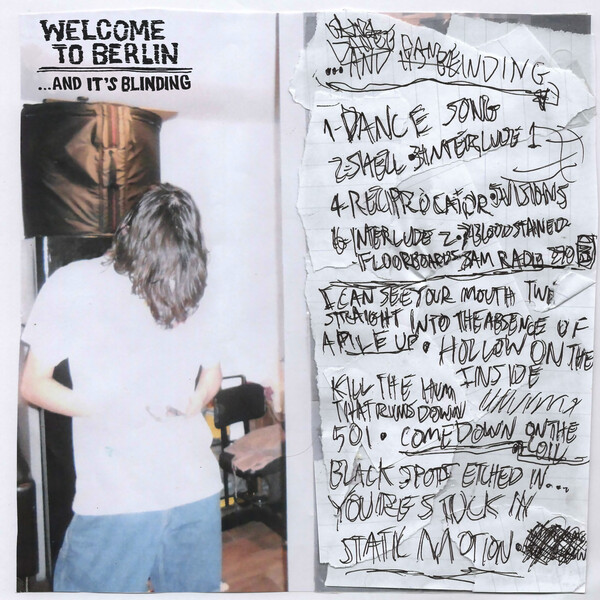 WELCOME
TO BERLIN
...AND IT'S BLINDING
...AND IT'S BLINDING
1-DANCE SONG
2-SHELL·3INTERLUDE 1
4-RECIPROCATOR·5VISIONS
6-INTERLUDE 2-7BLOODSTAINED
FLOORBOARDS·8AM RADIO
I CAN SEE YOUR MOUTH
STRAIGHT INTO THE ABSENCE OF
A PILE UP. HOLLOW ON THE
INSIDE
KILL THE HUM
THAT RUNS DOWN
501. COMEDOWN ON THE
BLACK SPOTS ETCHED IN...
YOU'RE STUCK IN
STATIC MOTION.